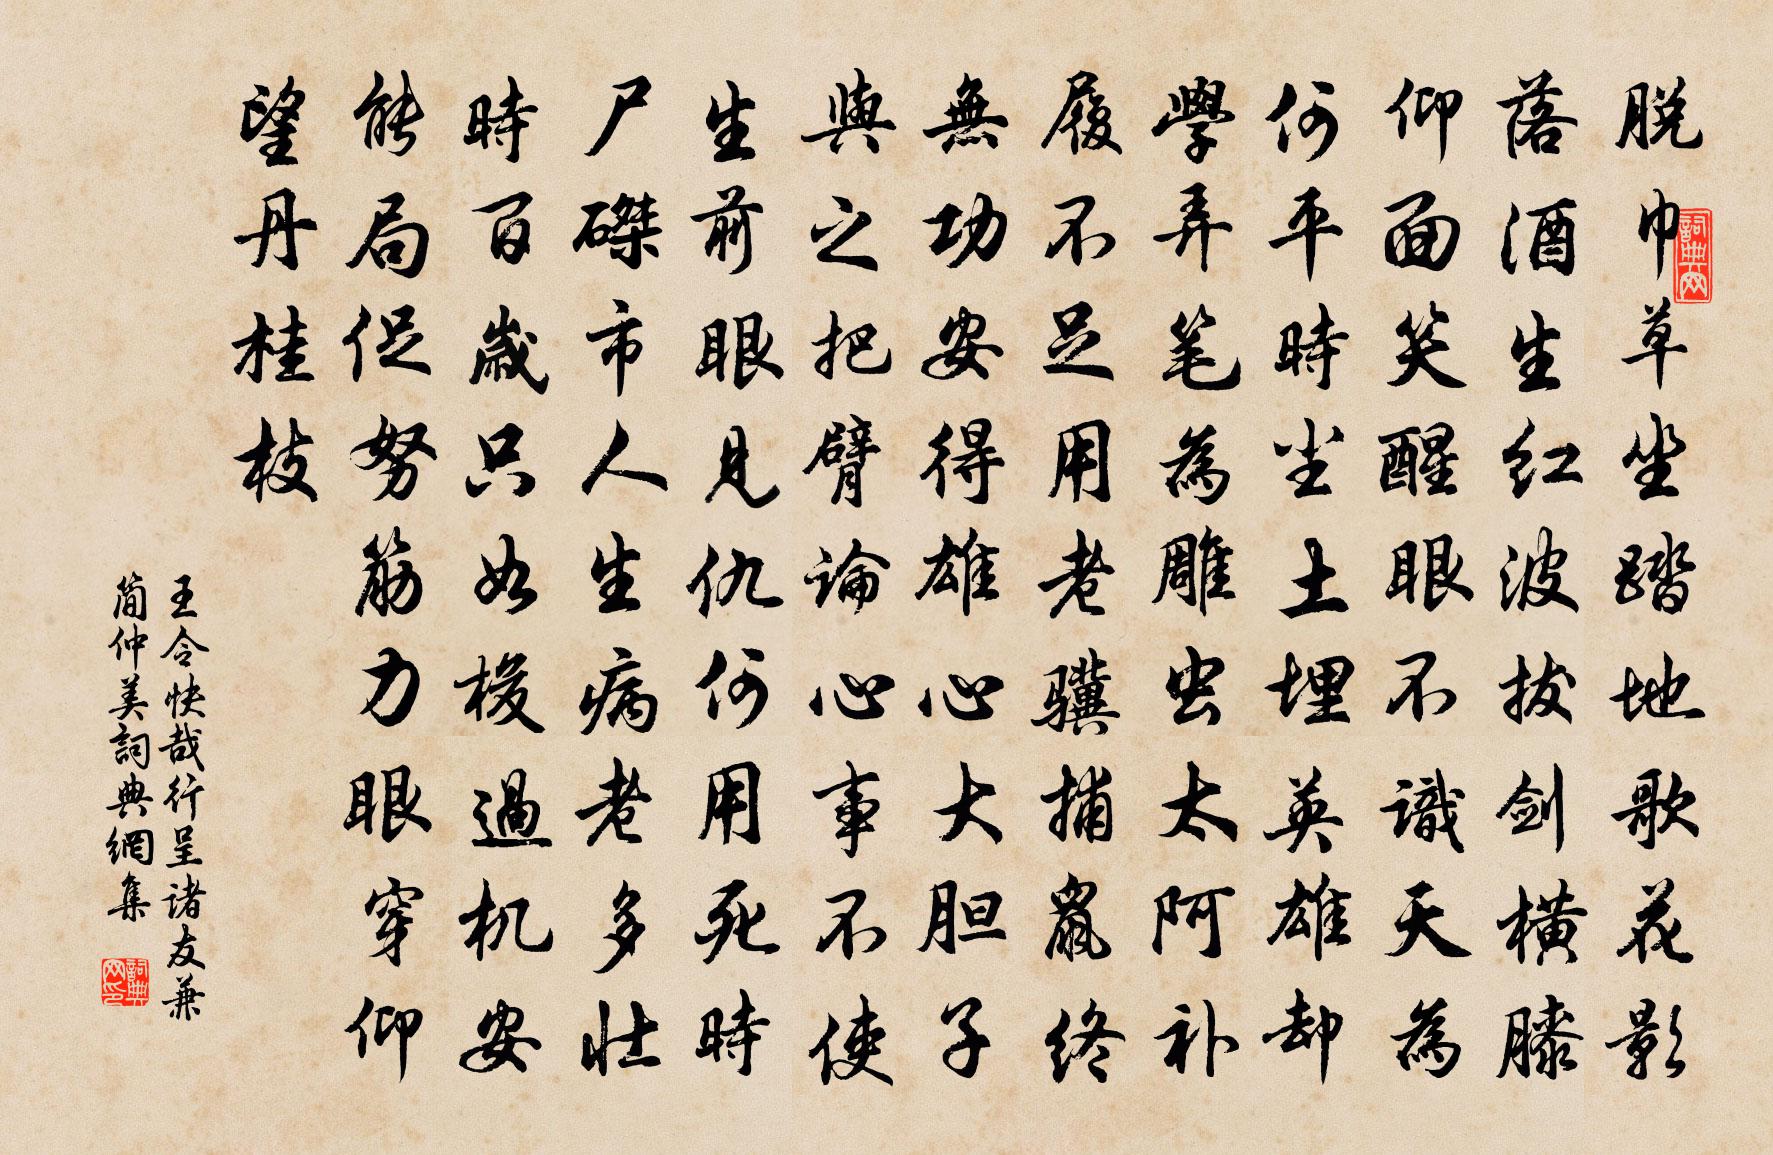 脱巾草坐踏地歌花影
落酒生红波拔剑横膝
仰面笑醒眼不識天為
何平時尘土埋英雄却
學弄笔為雕虫太阿补
履不足用老骥捕鼠终
無功安得雄心大胆子
與之把臂論心事不使
生前眼見仇何用死時
尸磔市人生病老多壮
時百歲只如梭過机安
能局促努筋力眼穿仰
望丹桂枝
王令快哉行呈诸友兼
簡仲美詞典網集
詞典网
詞典网印